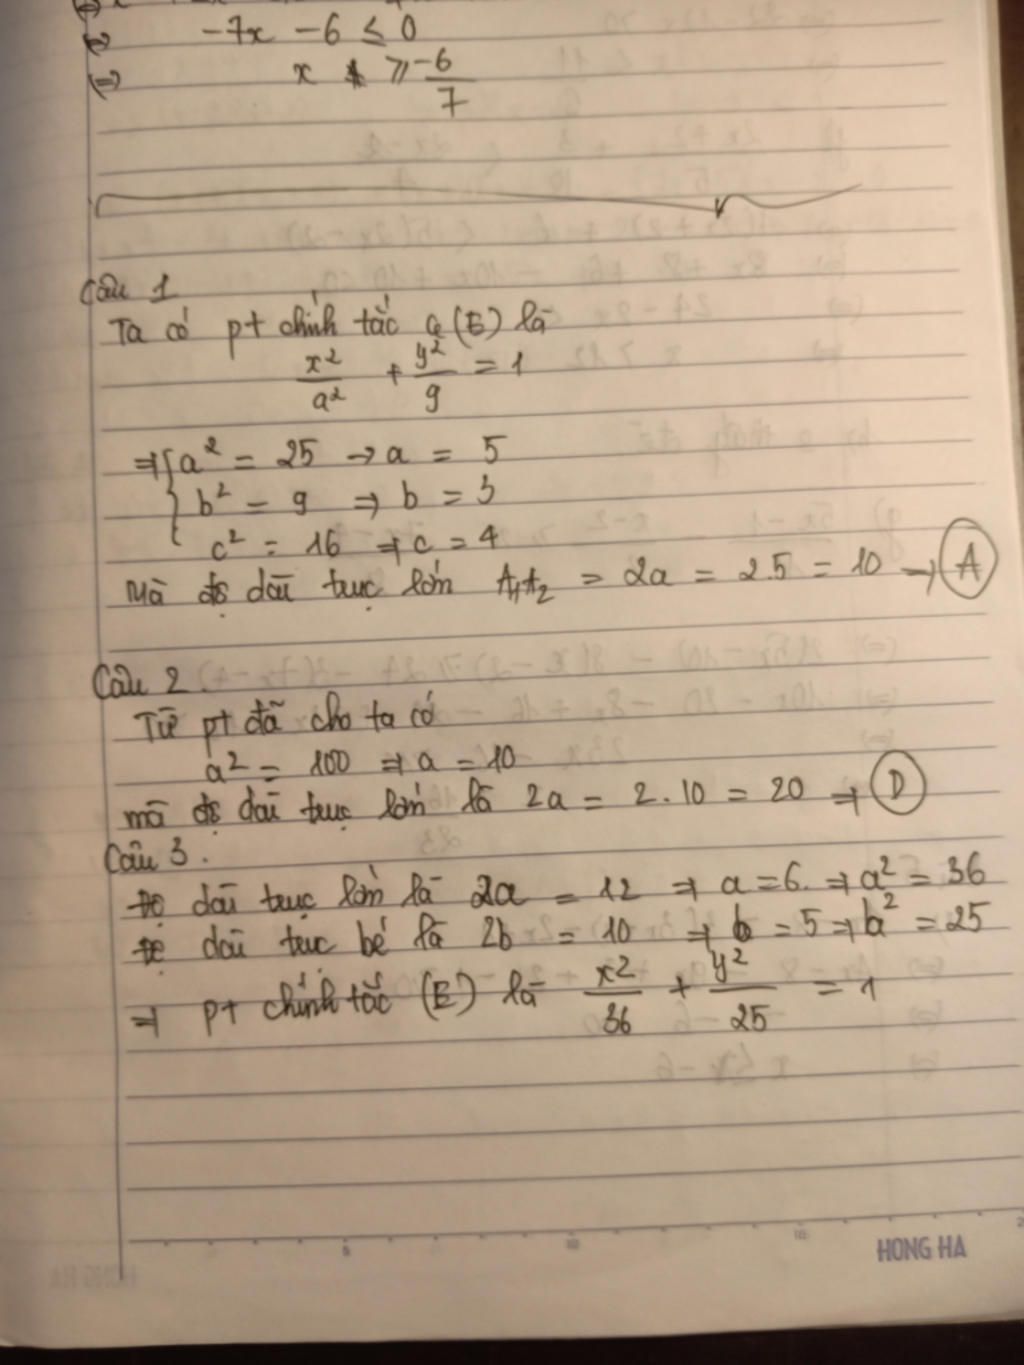 (=) -7x - 6 ≤ 0
(=) x ≥ -6/7
Câu 1
Ta có pt chính tắc c (E) là
x²/a² + y²/9 = 1
⇒ { a² = 25 → a = 5
b² = 9 ⇒ b = 3
c² = 16 ⇒ c = 4
Mà độ dài trục lớn A₁A₂ = 2a = 2.5 = 10 → A
Câu 2.
Từ pt đã cho ta có
a² = 100 ⇒ a = 10
mà độ dài trục lớn là 2a = 2.10 = 20 ⇒ D
Câu 3.
Độ dài trục lớn là 2a = 12 ⇒ a = 6. ⇒ a² = 36
Độ dài trục bé là 2b = 10 ⇒ b = 5 ⇒ b² = 25
⇒ pt chính tắc (E) là x²/36 + y²/25 = 1
HONG HA